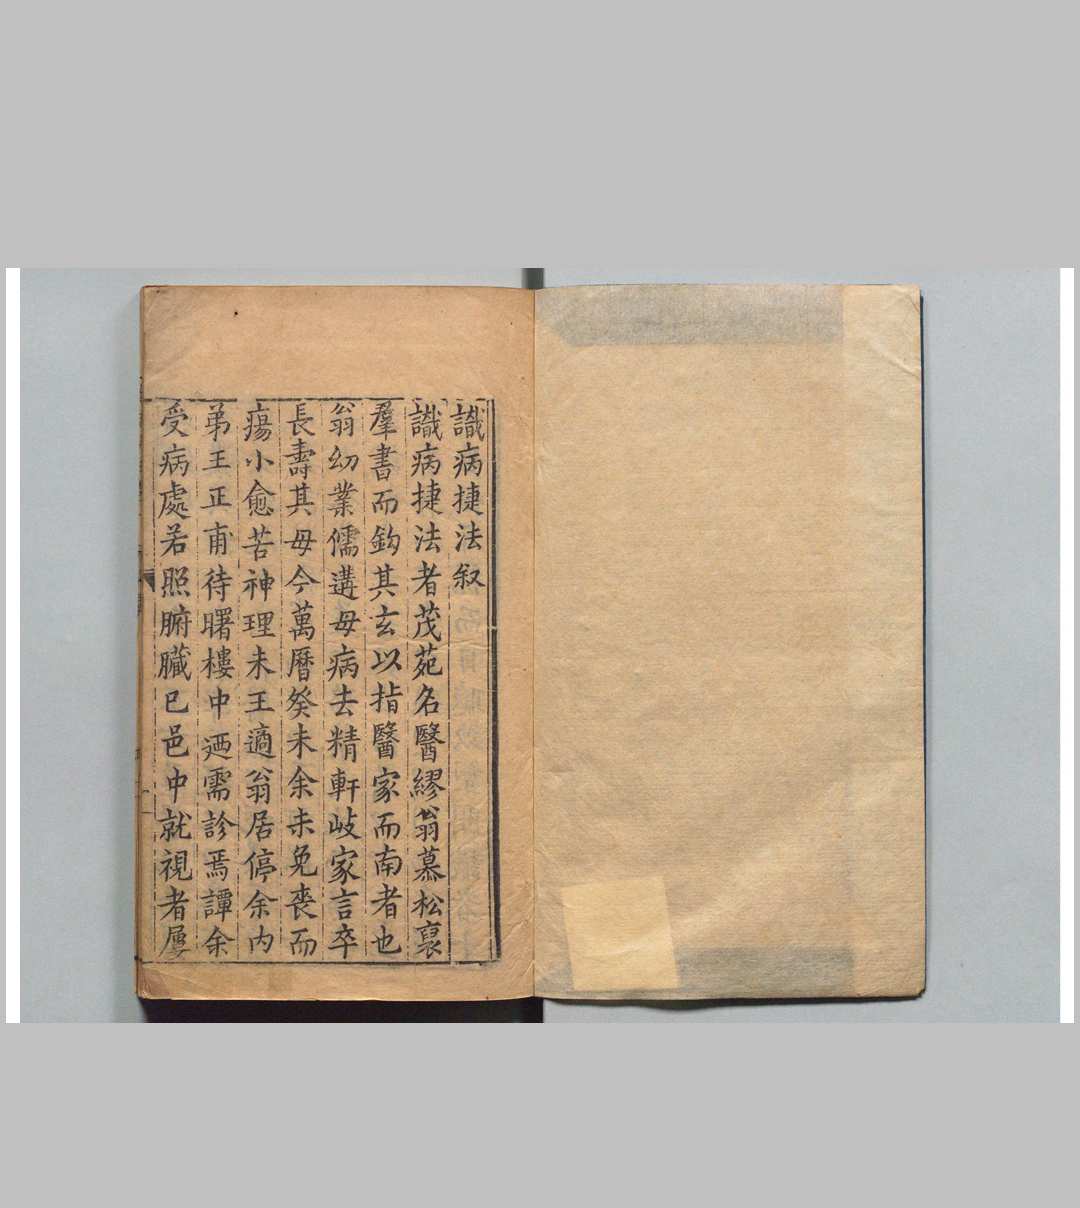 識病捷法叙
識病捷法者茂苑名醫繆翁慕松裒
羣書而鈎其玄以指醫家而南者也
翁幼業儒遘毋病去精軒岐家言卒
長壽其毋今萬曆癸未余未免喪而
瘍小愈苦神理未王適翁居停余内
弟王正甫待曙樓中迺需診焉譚余
受病處若照腑臟已邑中就視者屨